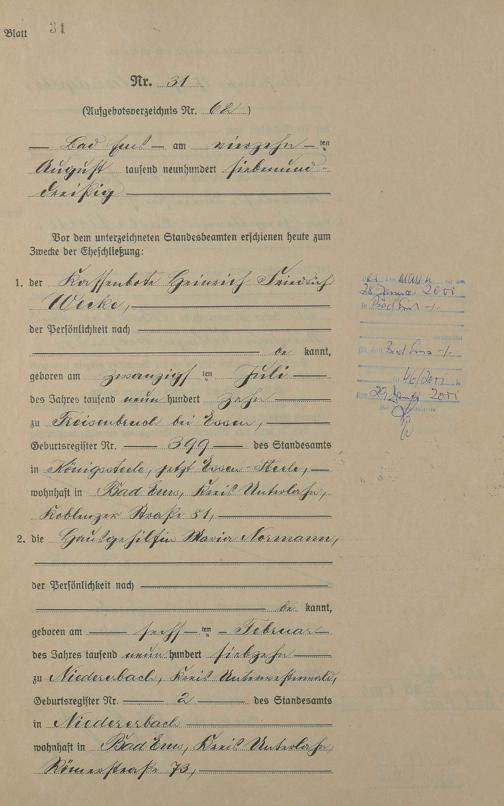 Blatt 31
Nr. 31
(Aufgebotsverzeichnis Nr. 62)
Bad Ems am vierzehnten
August tausend neunhundert siebenund-
dreißig
Vor dem unterzeichneten Standesbeamten erschienen heute zum
Zwecke der Eheschließung:
1. der Kassenbote Heinrich Friedrich
Wecke,
der Persönlichkeit nach
be kannt,
geboren am zwanzigsten Juli
des Jahres tausend neun hundert zehn
zu Freisenbruch bei Essen,
Geburtsregister Nr. 399 des Standesamts
in Königssteele, jetzt Essen-Steele,
wohnhaft in Bad Ems, Kreis Unterlahn,
Koblenzer Straße 51,
2. die Hausgehilfin Maria Normann,
der Persönlichkeit nach
be kannt,
geboren am sechsten Februar
des Jahres tausend neun hundert siebzehn
zu Niedererbach, Kreis Unterwesterwald,
Geburtsregister Nr. 2 des Standesamts
in Niedererbach
wohnhaft in Bad Ems, Kreis Unterlahn,
Römerstraße 73,
2001
in Bad Ems -/-
Bad Ems -/-
2001